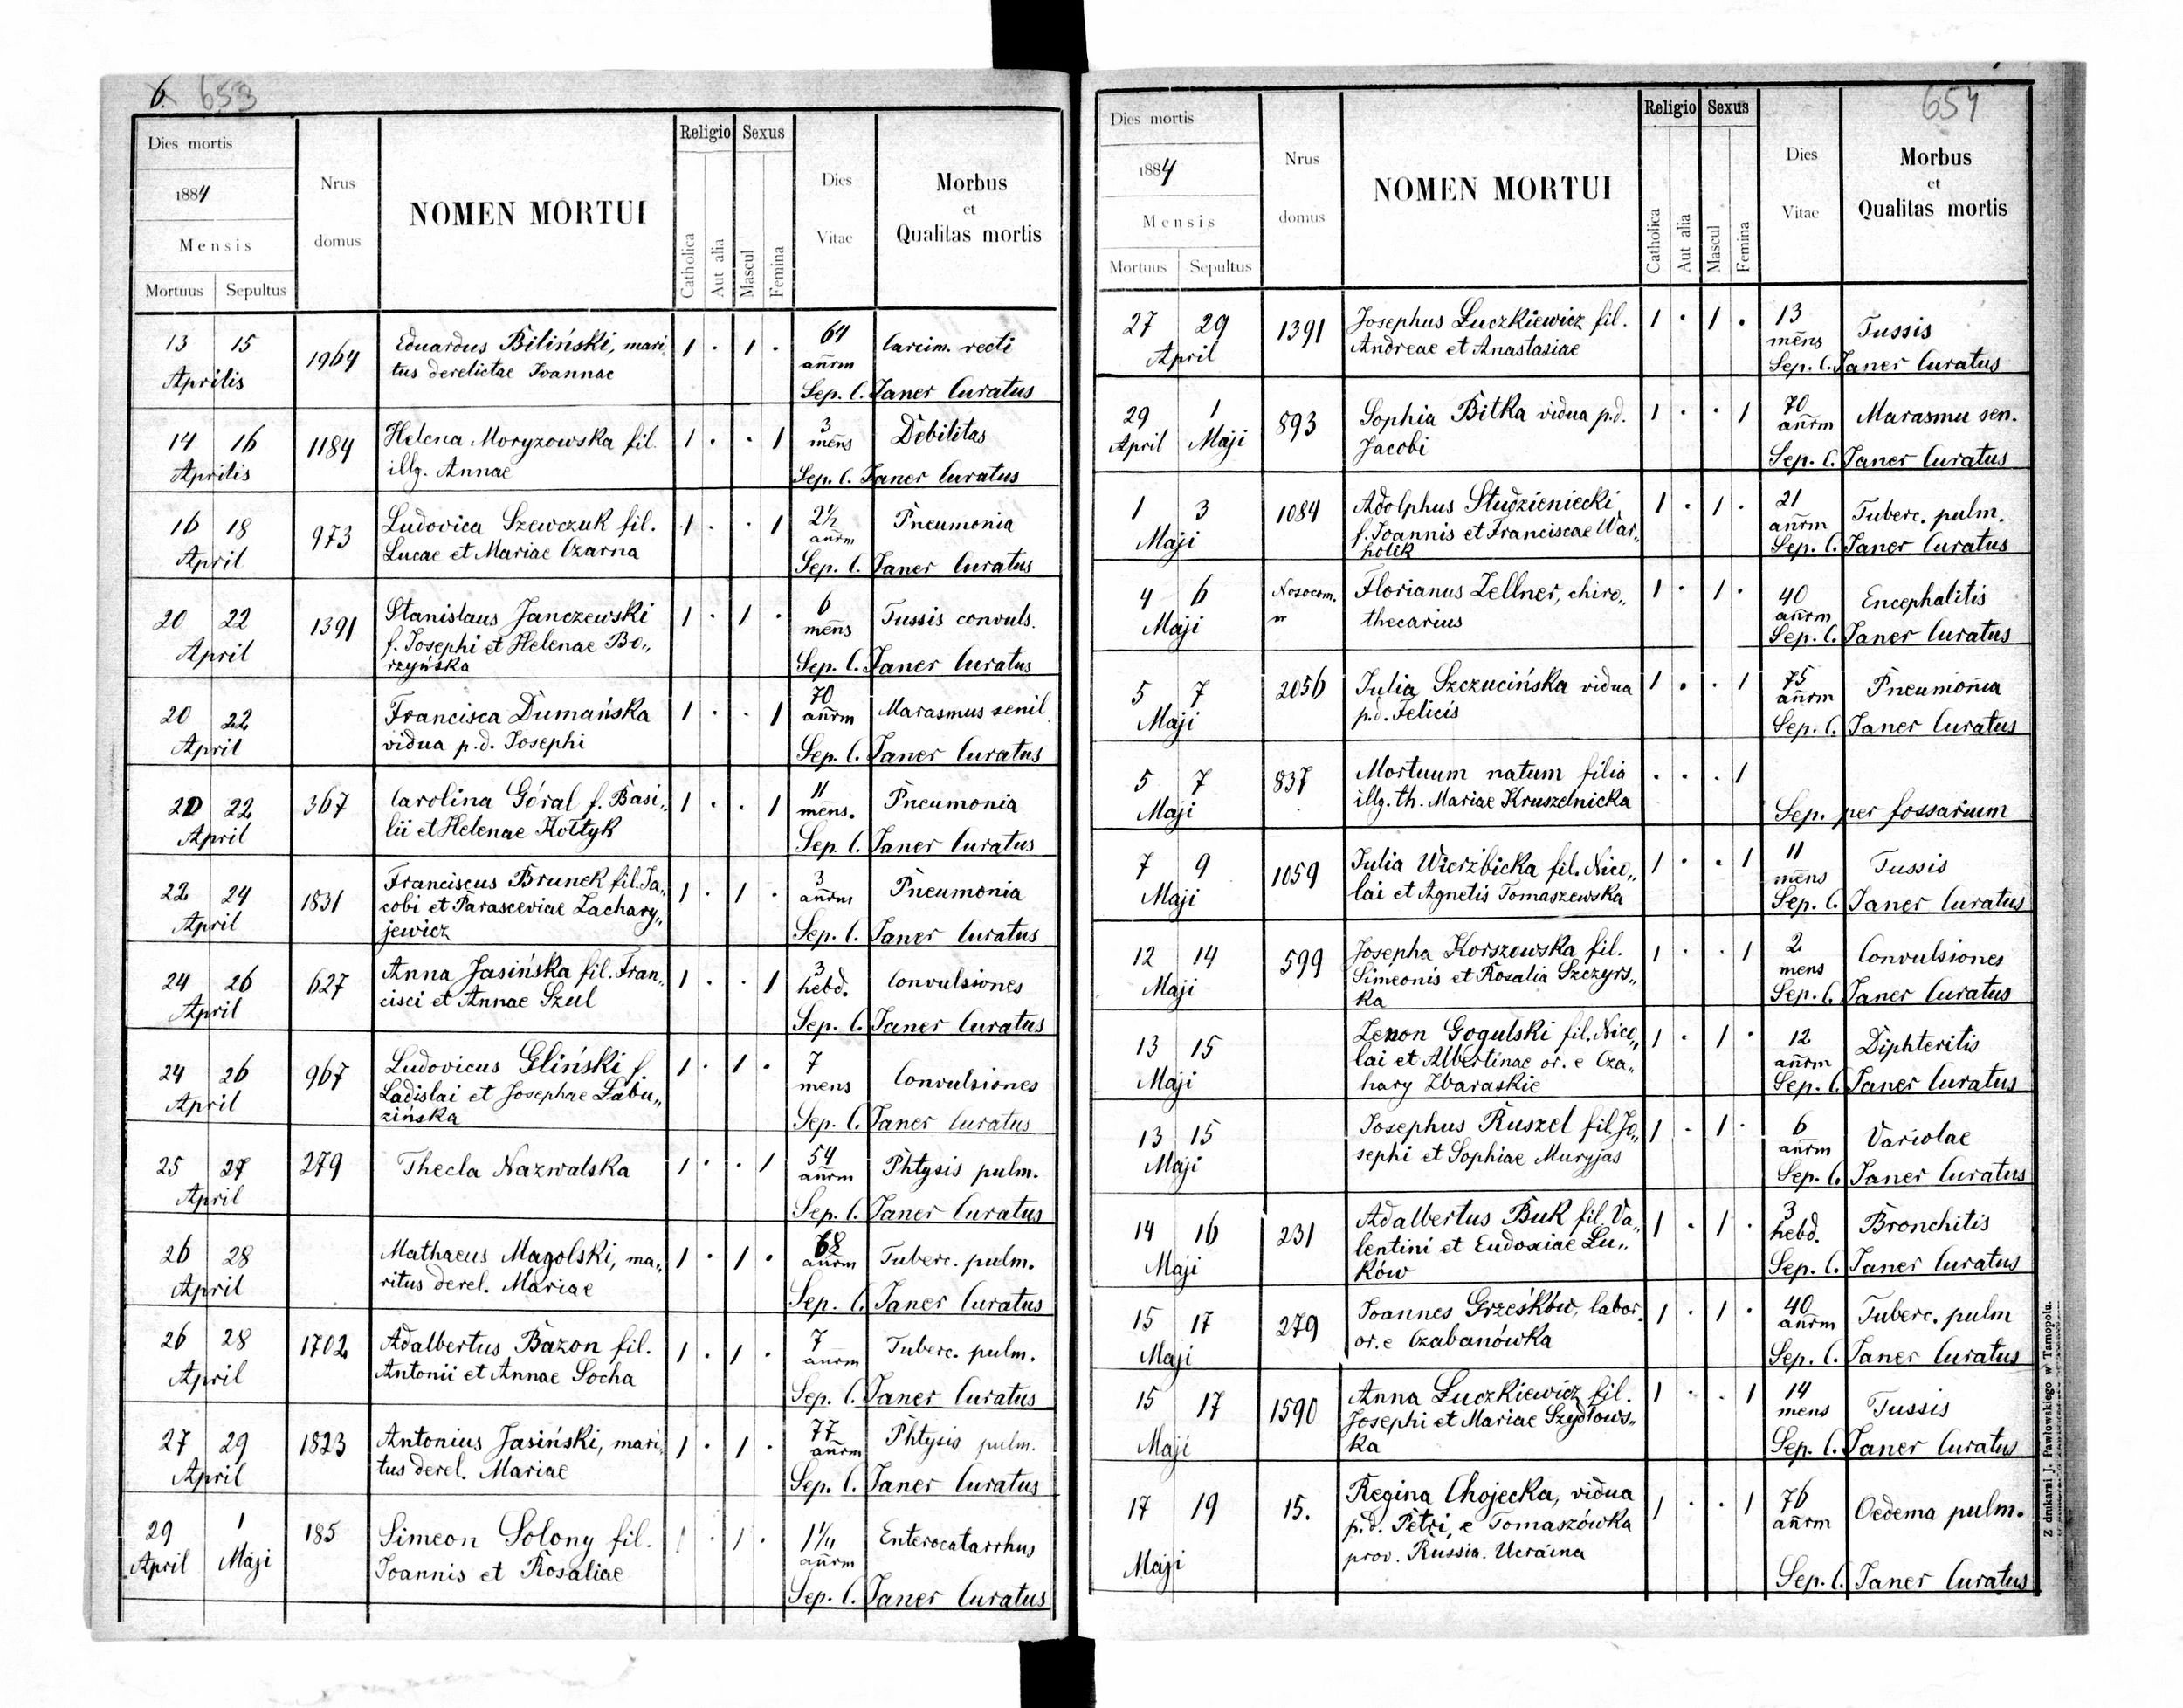 6. 653
Dies mortis
1884
Mensis
Mortuus Sepultus
Nrus
domus
NOMEN MORTUI
Religio Sexus
Catholica
Aut alia
Mascul
Femina
Dies
Vitae
Morbus
et
Qualitas mortis
13 15 1964 Eduardus Biliński, mari„ 1 · 1 · 64 Carcim. recti
Aprilis tus derelictae Joannae añrm
Sep. C. Janer Curatus
14 16 1184 Helena Moryzowska fil. 1 · · 1 3 Debilitas
Aprilis illg. Annae mens
Sep. C. Janer Curatus
16 18 973 Ludovica Szewczuk fil. 1 · · 1 2½ Pneumonia
April Lucae et Mariae Czarna añrm
Sep. C. Janer Curatus
20 22 1391 Stanislaus Janczewski 1 · 1 · 6 Tussis convuls.
April f. Josephi et Helenae Bo„ mens
rzyńska Sep. C. Janer Curatus
20 22 Francisca Dumańska 1 · · 1 70 Marasmus senil
April vidua p.d. Josephi añrm
Sep. C. Janer Curatus
20 22 367 Carolina Góral f. Basi„ 1 · · 1 11 Pneumonia
April lii et Helenae Kołtyk mens.
Sep. C. Janer Curatus
22 24 1831 Franciscus Brunek fil. Ja„ 1 · 1 · 3 Pneumonia
April cobi et Parasceviae Zachary„ añrm
jewicz Sep. C. Janer Curatus
24 26 627 Anna Jasińska fil. Fran„ 1 · · 1 3 Convulsiones
April cisci et Annae Szul hebd.
Sep. C. Janer Curatus
24 26 967 Ludovicus Gliński f. 1 · 1 · 7 Convulsiones
April Ladislai et Josephae Łabu„ mens
zińska Sep. C. Janer Curatus
25 27 279 Thecla Nazwalska 1 · · 1 54 Phtysis pulm.
April añrm
Sep. C. Janer Curatus
26 28 Mathaeus Magolski, ma„ 1 · 1 · 68 Tuberc. pulm.
April ritus derel. Mariae añrm
Sep. C. Janer Curatus
26 28 1702 Adalbertus Bazon fil. 1 · 1 · 7 Tuberc. pulm.
April Antonii et Annae Socha añrm
Sep. C. Janer Curatus
27 29 1823 Antonius Jasiński, mari„ 1 · 1 · 77 Phtysis pulm.
April tus derel. Mariae añrm
Sep. C. Janer Curatus
29 1 185 Simeon Solony fil. 1 · 1 · 1¼ Enterocatarrhus
April Maji Joannis et Rosaliae añrm
Sep. C. Janer Curatus
654
Dies mortis
1884
Mensis
Mortuus Sepultus
Nrus
domus
NOMEN MORTUI
Religio Sexus
Catholica
Aut alia
Mascul
Femina
Dies
Vitae
Morbus
et
Qualitas mortis
27 29 1391 Josephus Łuczkiewicz fil. 1 · 1 · 13 Tussis
April Andreae et Anastasiae mens
Sep. C. Janer Curatus
29 1 893 Sophia Bitka vidua p.d. 1 · · 1 70 Marasmu sen.
April Maji Jacobi añrm
Sep. C. Janer Curatus
1 3 1084 Adolphus Studzieniecki 1 · 1 · 21 Tuberc. pulm.
Maji f. Joannis et Franciscae War„ añrm
holik Sep. C. Janer Curatus
4 6 Nosocom. Florianus Zellner, chiro„ 1 · 1 · 40 Encephalitis
Maji thecarius añrm
Sep. C. Janer Curatus
5 7 2056 Julia Szczucińska vidua 1 · · 1 75 Pneumonia
Maji p.d. Felicis añrm
Sep. C. Janer Curatus
5 7 837 Mortuum natum filia · · · 1
Maji illg. th. Mariae Kruszelnicka
Sep. per fossarium
7 9 1059 Julia Wierzbicka fil. Nico„ 1 · · 1 11 Tussis
Maji lai et Agnetis Tomaszewska mens
Sep. C. Janer Curatus
12 14 599 Josepha Korszowska fil. 1 · · 1 2 Convulsiones
Maji Simeonis et Rosalia Szczyrs„ mens
ka Sep. C. Janer Curatus
13 15 Zenon Gogulski fil. Nico„ 1 · 1 · 12 Diphteritis
Maji lai et Albertinae or. e Cza„ añrm
hary Zbaraskie Sep. C. Janer Curatus
13 15 Josephus Ruszel fil. Jo„ 1 · 1 · 6 Variolae
Maji sephi et Sophiae Muryjas añrm
Sep. C. Janer Curatus
14 16 231 Adalbertus Buk fil. Va„ 1 · 1 · 3 Bronchitis
Maji lentini et Eudoxiae Lu„ hebd.
ków Sep. C. Janer Curatus
15 17 279 Joannes Grześków, labor. 1 · 1 · 40 Tuberc. pulm
Maji or. e Czabanówka añrm
Sep. C. Janer Curatus
15 17 1590 Anna Łuczkiewicz fil. 1 · · 1 14 Tussis
Maji Josephi et Mariae Szydłows„ mens
ka Sep. C. Janer Curatus
17 19 15. Regina Chojecka, vidua 1 · · 1 76 Oedema pulm.
Maji p.d. Petri, e Tomaszówka añrm
prov. Russia. Ucraina
Sep. C. Janer Curatus
Z drukarni J. Pawłowskiego w Tarnopolu.